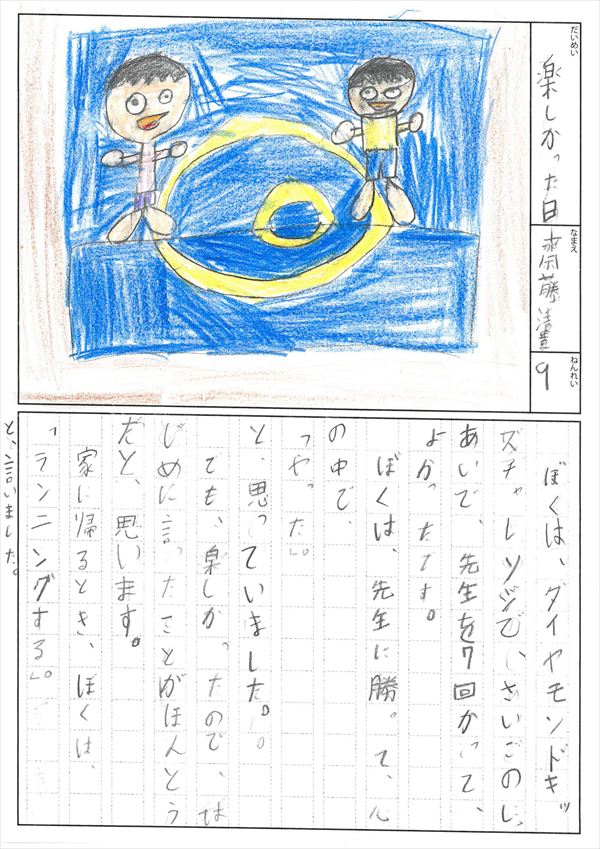 だいめい
楽しかった日
なまえ
齋藤
ねんれい
9
ぼくは、ダイヤモンドキッ
ズチャレンジで、さいごのし
あいで、先生を7回かって、
よかったです。
ぼくは、先生に勝って、心
の中で、
「やった」。
と、思っていました。
でも、楽しかったので、は
じめに言ったことがほんとう
だと、思います。
家に帰るとき、ぼくは、
「ランニングする」。
と、言いました。